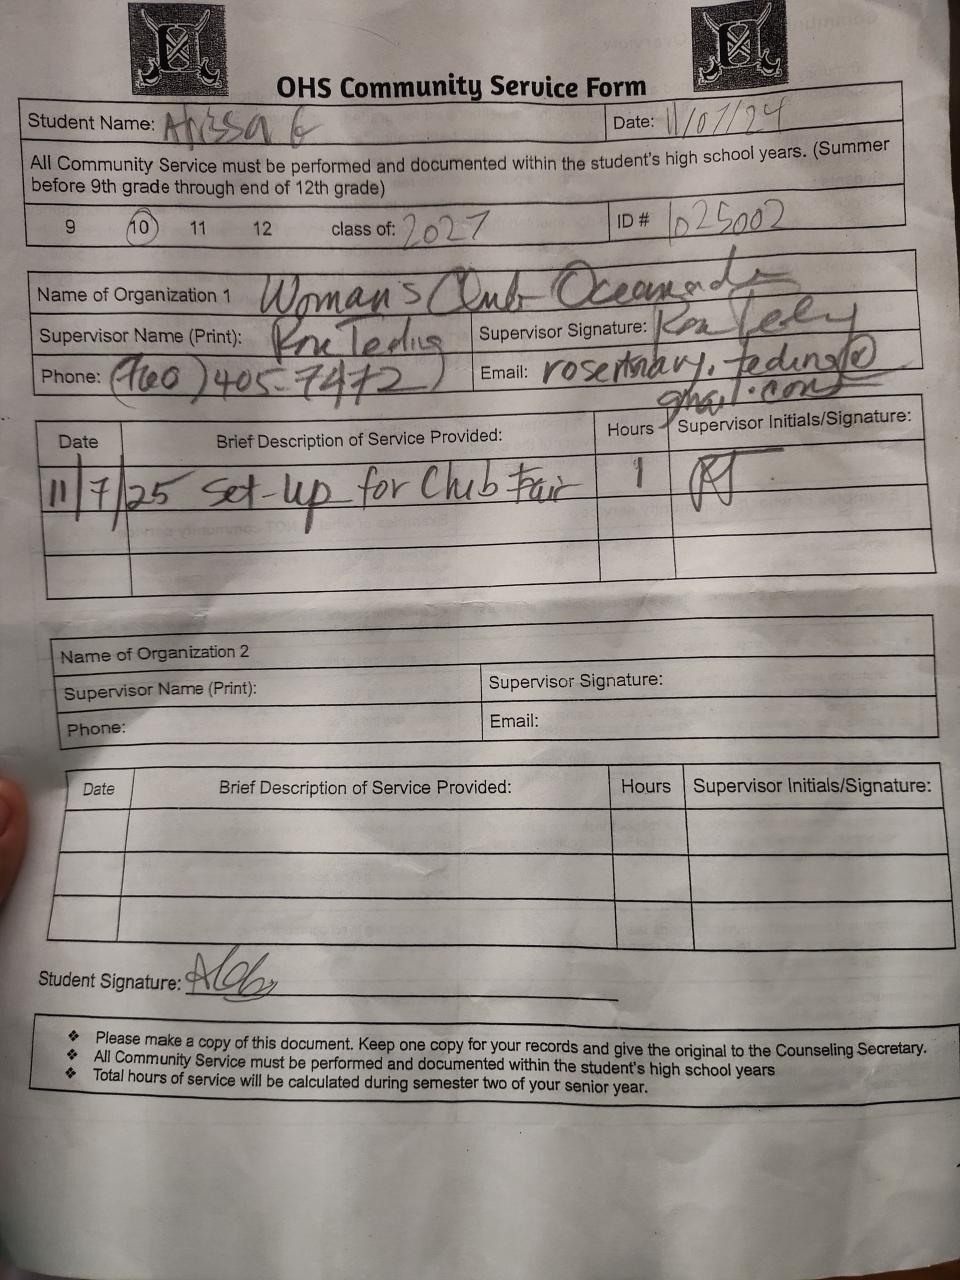 OHS Community Service Form
Student Name: Anissa G Date: 11/07/24
All Community Service must be performed and documented within the student's high school years. (Summer
before 9th grade through end of 12th grade)
9 10 11 12 class of: 2027 ID # 1025002
Name of Organization 1 Woman's Club Oceanside
Supervisor Name (Print): Supervisor Signature:
Phone: (760) 405-7472 Email: rosemary.teding@
gmail.com
Date Brief Description of Service Provided: Hours Supervisor Initials/Signature:
11/7/25 Set-up for Club Fair 1 RT
Name of Organization 2
Supervisor Name (Print): Supervisor Signature:
Phone: Email:
Date Brief Description of Service Provided: Hours Supervisor Initials/Signature:
Student Signature:
❖ Please make a copy of this document. Keep one copy for your records and give the original to the Counseling Secretary.
❖ All Community Service must be performed and documented within the student's high school years
❖ Total hours of service will be calculated during semester two of your senior year.